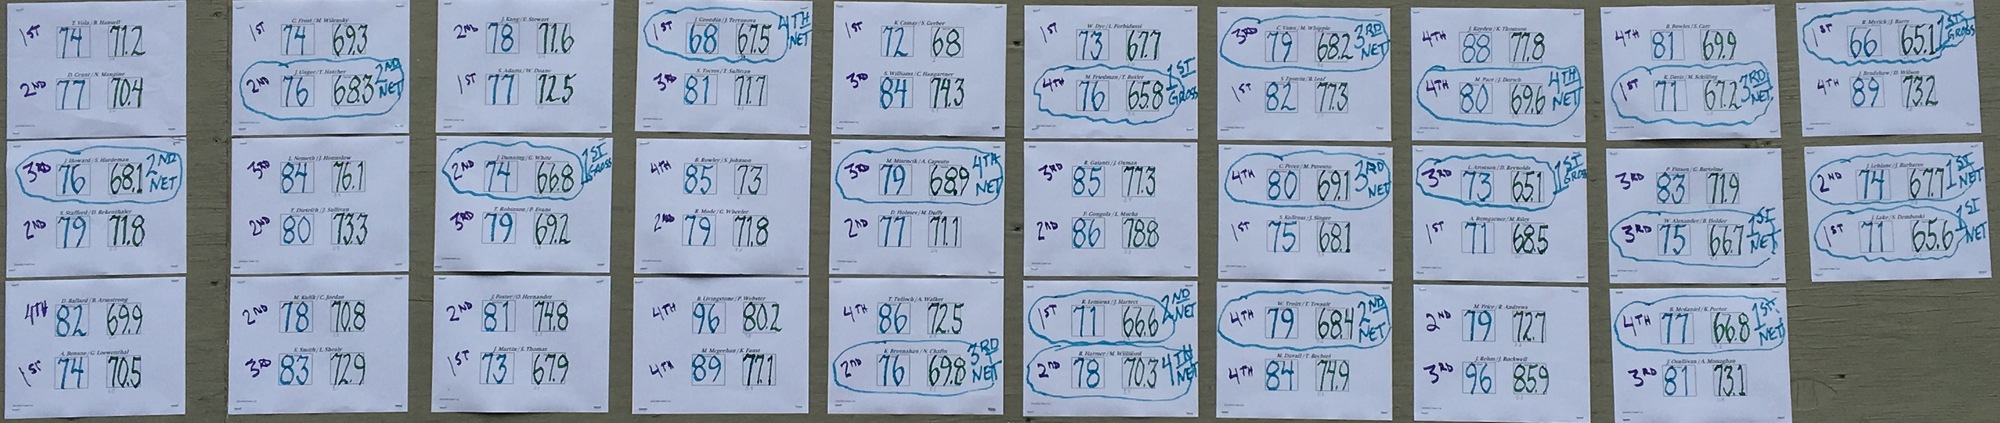 T. Viola / B. Hansell
1ST 74 71.2
D. Grant / N. Mangine
2ND 77 70.4
C. Frost / M. Wilensky
1ST 74 69.3
J. Unger / T. Hatcher
2ND 76 68.3 2ND NET
J. Kang / E. Stewart
2ND 78 71.6
S. Adams / W. Doane
1ST 77 72.5
1ST 68 67.5 4TH NET
S. Torres / T. Sullivan
3RD 81 71.7
K. Camay / S. Gerber
1ST 72 68
S. Williams / C. Hangartner
3RD 84 74.3
W. Dye / L. Forbidussi
1ST 73 67.7
M. Friedman / T. Butler
4TH 76 65.8 1ST GROSS
C. Vans / M. Whipple
3RD 79 68.2 3RD NET
1ST 82 77.3
J. Hayden / K. Thomson
4TH 88 77.8
M. Pace / J. Dorsch
4TH 80 69.6 4TH NET
B. Bowles / S. Carr
4TH 81 69.9
K. Davis / M. Schilling
1ST 71 67.2 3RD NET
B. Myrick / J. Barry
1ST 66 65.1 1ST GROSS
J. Bradshaw / D. Wilson
4TH 89 73.2
J. Howard / S. Hardeman
3RD 76 68.1 2ND NET
S. Stafford / D. Bekenthaler
2ND 79 71.8
L. Nemeth / J. Hornslow
3RD 84 76.1
T. Dietrich / J. Sullivan
2ND 80 73.3
J. Dunning / G. White
2ND 74 66.8 1ST GROSS
T. Robinson / P. Evans
3RD 79 69.2
B. Rowley / S. Johnson
4TH 85 73
R. Made / G. Wheeler
2ND 79 71.8
M. Misencik / A. Caputo
3RD 79 68.9 4TH NET
D. Holmes / M. Duffy
2ND 77 71.1
R. Galanti / J. Oxman
3RD 85 77.3
F. Gongola / L. Mocha
2ND 86 78.8
4TH 80 69.1 3RD NET
S. Kallreus / J. Singer
1ST 75 68.1
L. Aronson / D. Reynolds
3RD 73 65.1 1ST GROSS
A. Bumgarner / M. Riley
1ST 71 68.5
P. Pitnan / G. Bartoline
3RD 83 71.9
W. Alexander / B. Holder
3RD 75 66.7 1ST NET
J. Leblanc / J. Barbaree
2ND 74 67.7 1ST NET
J. Lake / S. Demboski
1ST 71 65.6 1ST NET
D. Ballard / B. Armstrong
4TH 82 69.9
A. Bonano / G. Loewenthal
1ST 74 70.5
M. Kulik / C. Jordan
2ND 78 70.8
S. Smith / L. Shealy
3RD 83 72.9
J. Foster / D. Hernandez
2ND 81 74.8
J. Martin / S. Thomas
1ST 73 67.9
B. Livingstone / P. Webster
4TH 96 80.2
M. Mcgeehan / K. Faust
4TH 89 77.1
T. Tulloch / A. Walker
4TH 86 72.5
K. Bresnahan / N. Chafin
2ND 76 69.8 3RD NET
R. Lemieux / J. Harnett
1ST 71 66.6 2ND NET
R. Harmer / M. Williford
2ND 78 70.3 4TH NET
4TH 79 68.4 2ND NET
M. Duvall / T. Bechtel
4TH 84 74.9
M. Price / R. Andrews
2ND 79 72.7
J. Rehm / J. Rockwell
3RD 96 85.9
B. Mcdaniel / K. Porter
4TH 77 66.8 1ST NET
J. Osullivan / A. Monaghan
3RD 81 73.1